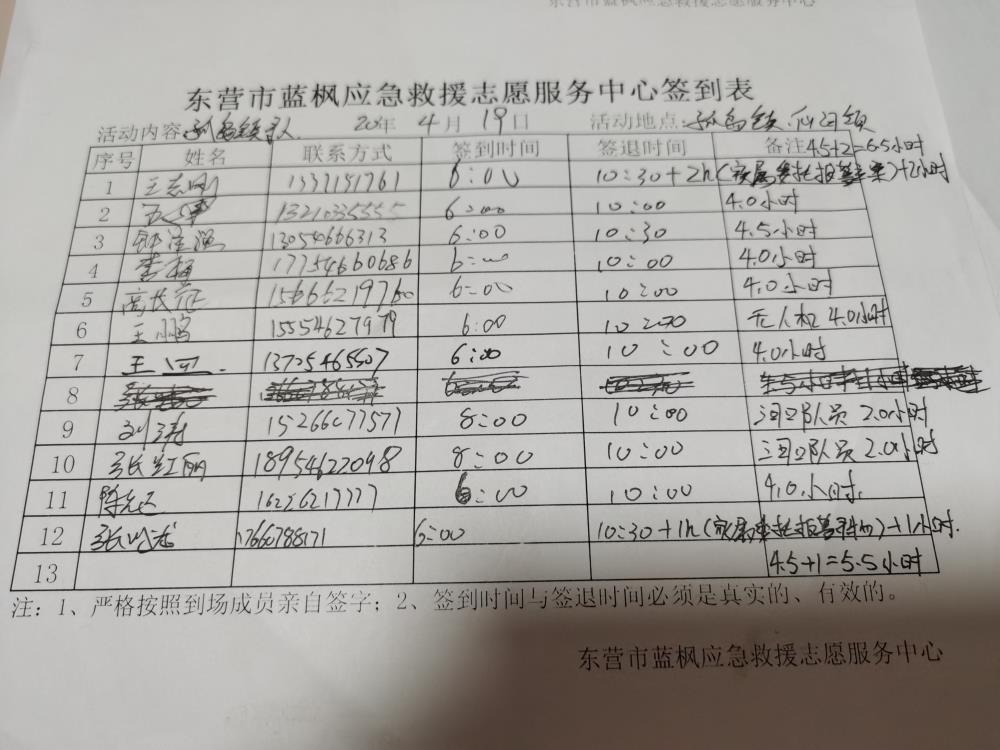 东营市蓝枫应急救援志愿服务中心
东营市蓝枫应急救援志愿服务中心签到表
活动内容: 孤岛镇寻人. 20 年 4 月 19 日 活动地点: 孤岛镇
序号 姓名 联系方式 签到时间 签退时间 备注 4.5+2=6.5小时
1 王志刚 1337151761 6:00 10:30+2h(家属委托报警)+2小时
2 6:00 10:00 4.0小时
3 13054666313 6:00 10:30 4.5小时
4 李梅 17754660686 6:00 10:00 4.0小时
5 高长征 6:00 10:00 4.0小时
6 王鹏 15554627979 6:00 10:00 无人机 4.0小时
7 王 13725465507 6:00 10:00 4.0小时
8
9 刘涛 15266077571 8:00 10:00 河口队员 2.0小时
10 张红丽 18954622098 8:00 10:00 河口队员 2.0小时
11 陈 16226217777 6:00 10:00 4.0小时.
12 张 17660788171 6:00 10:30+1h(家属委托报警)+1小时.
13 4.5+1=5.5小时
注: 1、严格按照到场成员亲自签字; 2、签到时间与签退时间必须是真实的、有效的。
东营市蓝枫应急救援志愿服务中心